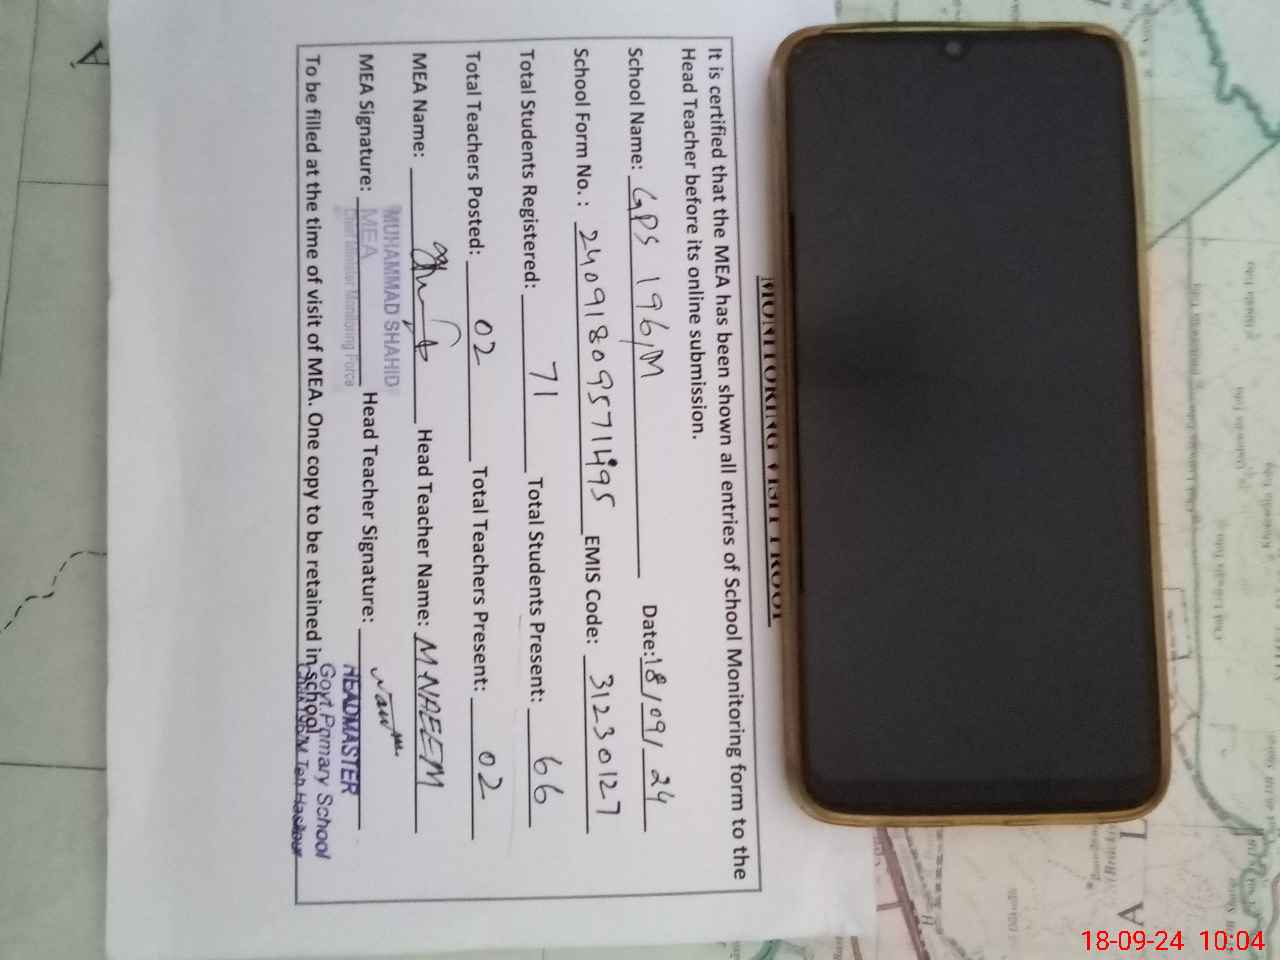 MONITORING VISIT PROOF
It is certified that the MEA has been shown all entries of School Monitoring form to the
Head Teacher before its online submission.
School Name: GPS 196/M Date: 18/09/24
School Form No. : 24091809571495 EMIS Code: 31230127
Total Students Registered: 71 Total Students Present: 66
Total Teachers Posted: 02 Total Teachers Present: 02
MEA Name: Head Teacher Name: M NAEEM
MUHAMMAD SHAHID
MEA Signature: MEA Head Teacher Signature:
Chief Minister Monitoring Force
HEADMASTER
Govt. Pimary School
To be filled at the time of visit of MEA. One copy to be retained in school.
18-09-24 10:04